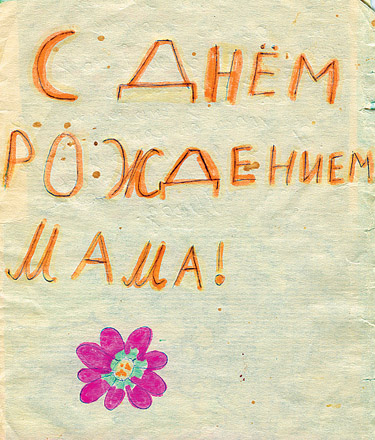 С ДНЁМ
РОЖДЕНИЕМ
МАМА!